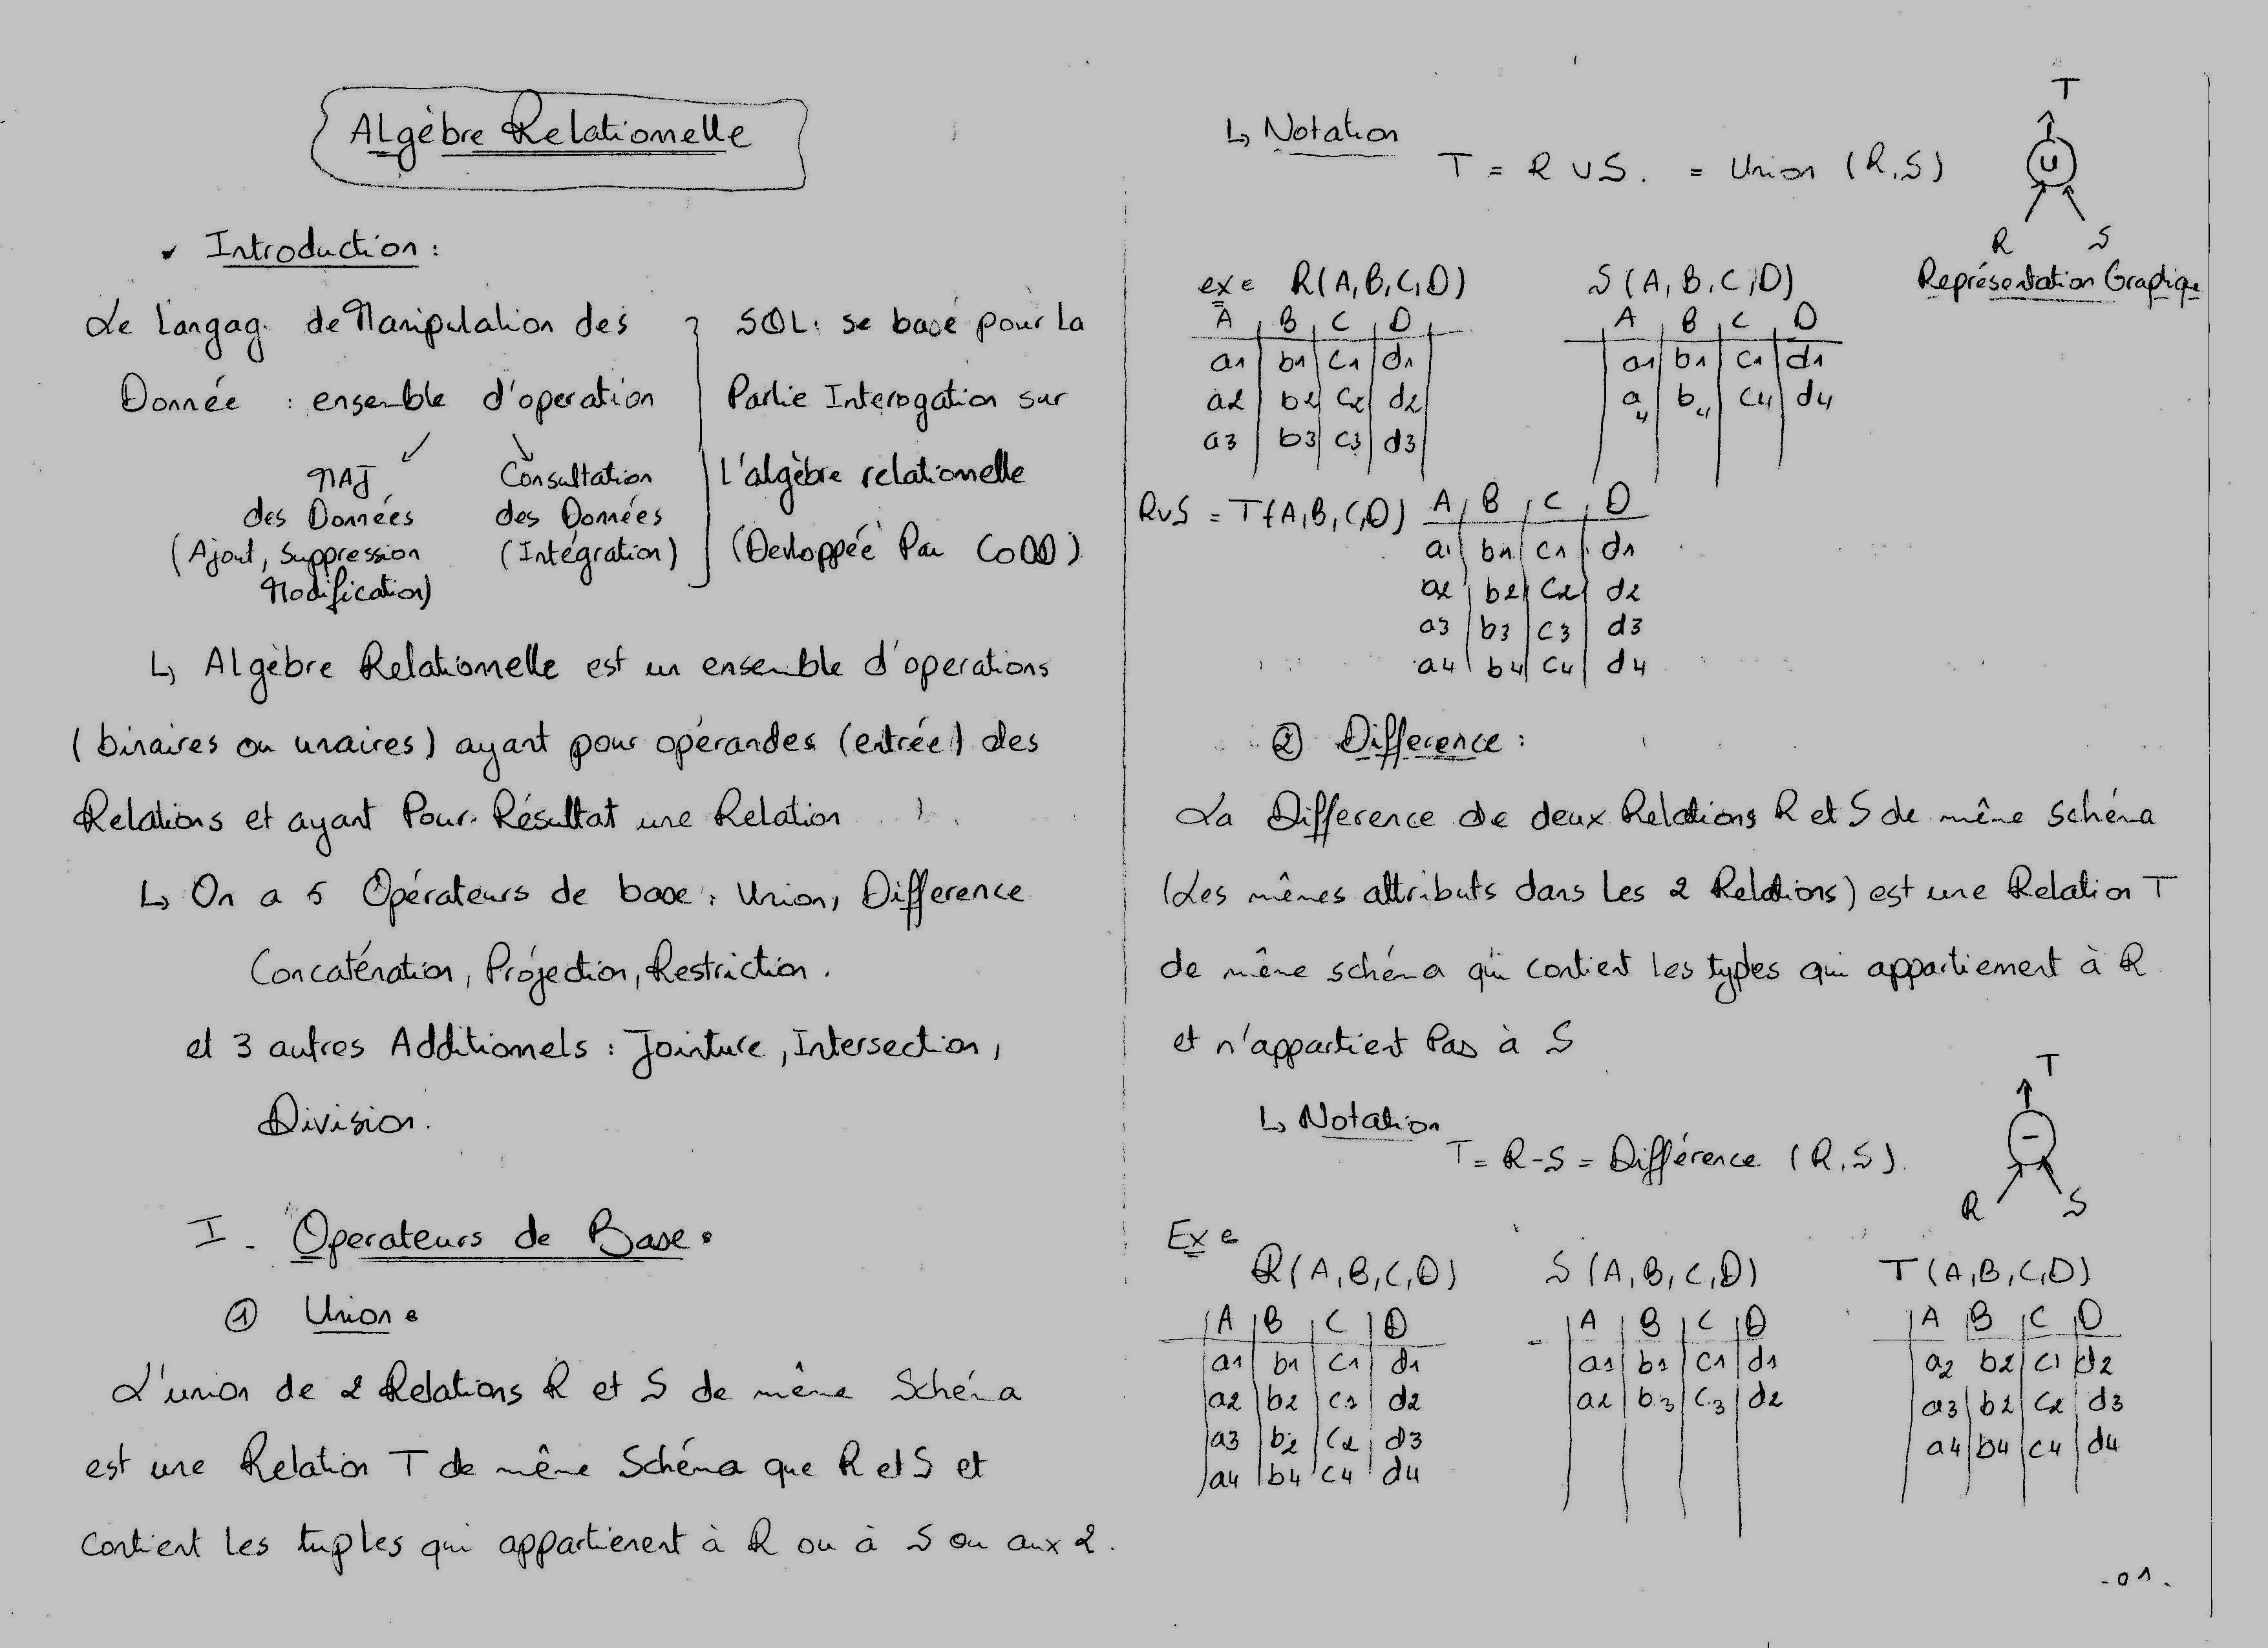 ALgèbre Relationelle
Introduction :
Le Langag. de Manipulation des
Donnée : ensemble d'operation
MAJ
des Données
(Ajout, Suppression
Modification)
Consultation
des Données
(Intégration)
SQL: se base pour La
Partie Interogation sur
L'algèbre relationelle
(Devloppée Par CODD)
↳ Algèbre Relationelle est un ensemble d'operations
(binaires ou unaires) ayant pour opérandes (entrée) des
Relations et ayant Pour Résultat une Relation
↳ On a 5 Opérateurs de base : Union, Difference
Concaténation, Projection, Restriction.
et 3 autres Additionnels : Jointure, Intersection,
Division.
I - Operateurs de Base.
① Union.
L'union de 2 Relations R et S de même Schéma
est une Relation T de même Schéma que R et S et
contient les tuples qui appartienent à R ou à S ou aux 2.
↳ Notation
T = R ∪ S. = Union (R,S)
T
∪
R S
Représentation Graphique
exe R(A,B,C,D)
A B C D
a1 b1 c1 d1
a2 b2 c2 d2
a3 b3 c3 d3
S(A,B,C,D)
A B C D
a1 b1 c1 d1
a4 b4 c4 d4
R∪S = T(A,B,C,D)
A B C D
a1 b1 c1 d1
a2 b2 c2 d2
a3 b3 c3 d3
a4 b4 c4 d4
② Difference :
La Difference de deux Relations R et S de même schéma
(Les mêmes attributs dans Les 2 Relations) est une Relation T
de même schéma qui contient les types qui appartiement à R
et n'appartient Pas à S
↳ Notation
T = R - S = Différence (R,S).
T
-
R S
Exe
R(A,B,C,D)
A B C D
a1 b1 c1 d1
a2 b2 c1 d2
a3 b2 c2 d3
a4 b4 c4 d4
-
S(A,B,C,D)
A B C D
a1 b1 c1 d1
a2 b3 c3 d2
T(A,B,C,D)
A B C D
a2 b2 c1 d2
a3 b2 c2 d3
a4 b4 c4 d4
-01.